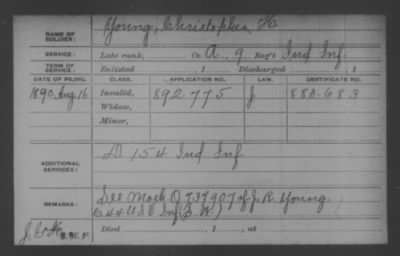 NAME OF SOLDIER: Young, Christopher
SERVICE: Late rank, Co. A, 9 Reg't Ind Inf.
TERM OF SERVICE: Enlisted , 1 Discharged , 1
DATE OF FILING. CLASS. APPLICATION NO. LAW. CERTIFICATE NO.
1890 Aug 16 Invalid, 892.775 J 888.683
Widow,
Minor,
ADDITIONAL SERVICES: D 154 Ind Inf
REMARKS: See 737907 of J. R. Young
44 U S Inf (S. W.)
Died , 1 , at